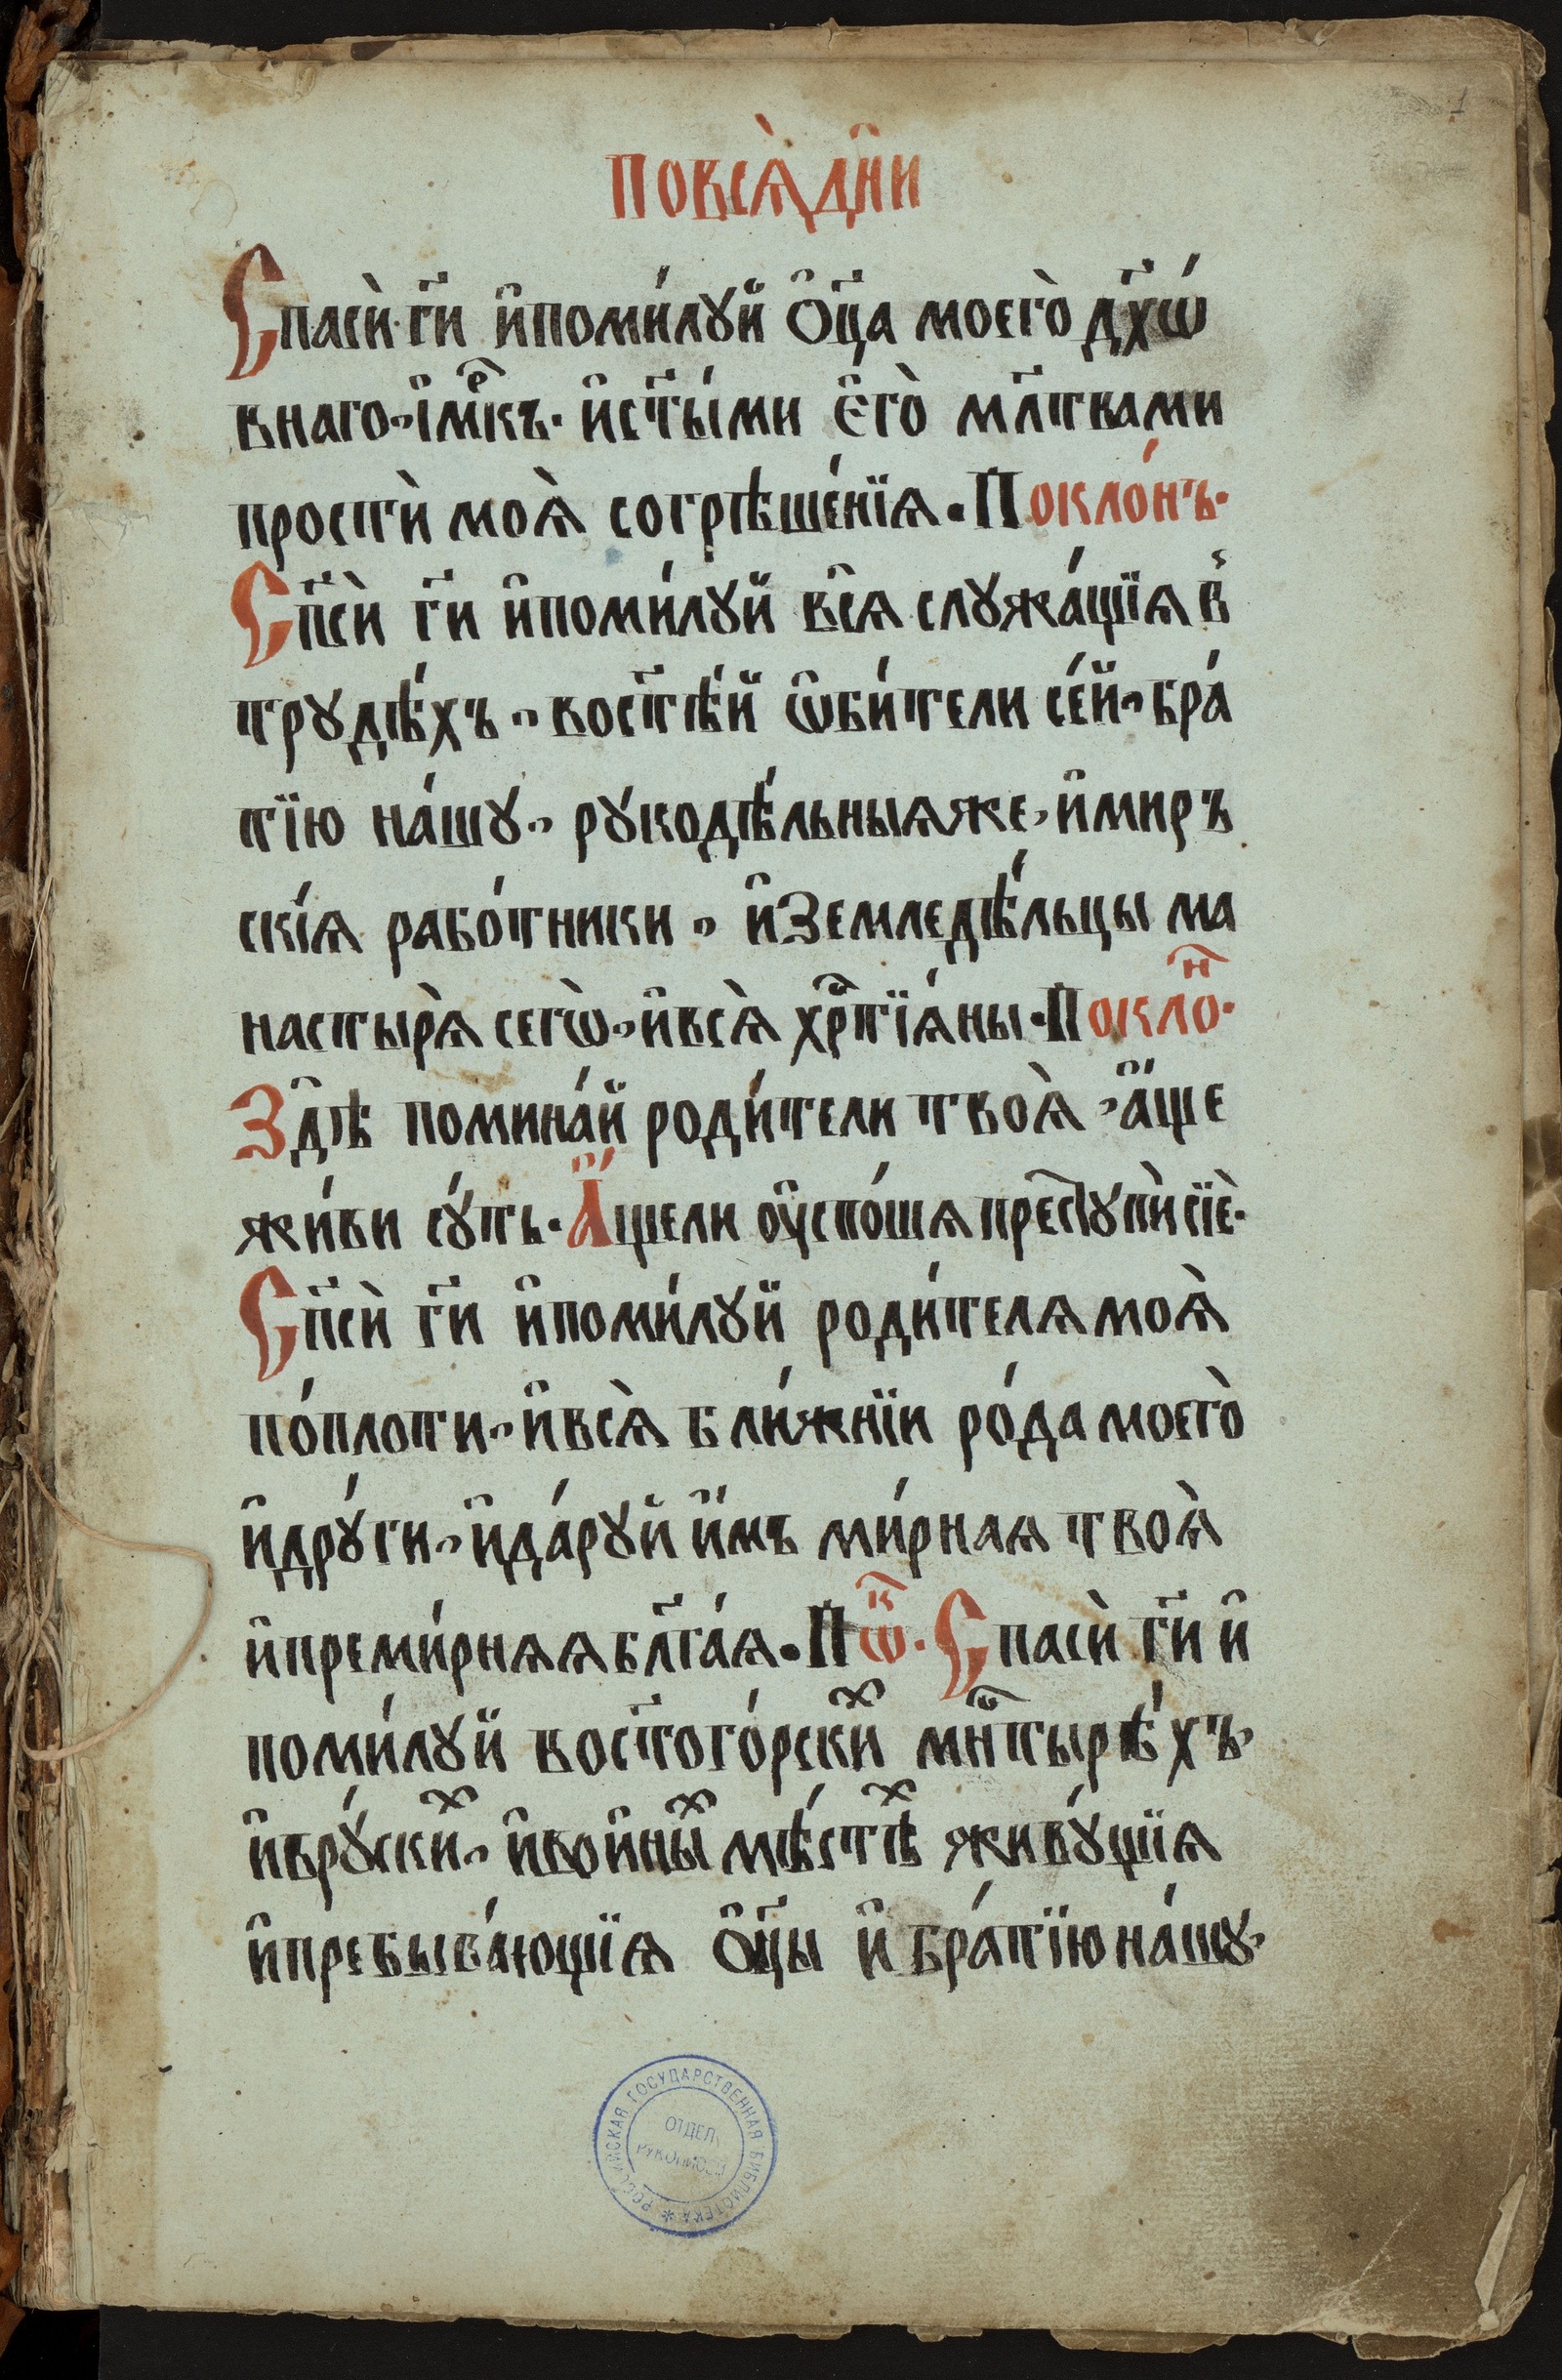 1
ПОВСѦ̀Дн҃и
Спасѝ· гд҃и и҆поми́лꙋй ѻ҆ц҃а моегѡ̀ дх҃ѡ́
внаго, і҆мр҃къ· и҆ст҃ы́ми є҆гѡ̀ мл҃твами
простѝ моѧ̀ согрѣше́нїѧ. Покло́нъ·
Сп҃сѝ гд҃и и҆поми́лꙋй всѧ̑ слꙋжа́щїѧ в̾
трꙋдѣ́хъ, вост҃ѣ́й ѡ҆би́тели се́й, бра́
тїю на́шꙋ, рꙋкодѣ́льныѧже, и҆миръ
скі́ѧ рабо́тники, и҆земледѣ́льцы ма
настырѧ̀ сегѡ̀, и҆всѧ̀ хрⷭ҇тїѧ́ны· Поклоⷩ҇·
Здѣ̑ помина́й роди́тели твоѧ̀, а҆́ще
жи́ви сꙋ́ть· А҆́щели ᲂу҆спо́шѧ престꙋпѝ сїѐ·
Сп҃сѝ гд҃и и҆поми́лꙋй роди́телѧ моѧ̀
по́плоти, и҆всѧ̀ бли́жнїи ро́да моегѡ̀
и҆дрꙋ́ги, и҆да́рꙋй и҆̀мъ ми́рнаѧ твоѧ̀
и҆преми́рнѧѧ бл҃га́ѧ. Пѡⷦ҇· Спасѝ гд҃и и҆
поми́лꙋй вост҃ого́рскиⷯ мн҃тырѣ́хъ,
и҆врꙋ́скиⷯ, и҆вои҆ны́ⷯ мѣ́стѣⷯ живꙋ́щїѧ
и҆пребыва́ющїѧ ѻ҆ц҃ы и҆ бра́тїю на́шꙋ,
РОССИЙСКАЯ ГОСУДАРСТВЕННАЯ БИБЛИОТЕКА *
ОТДЕЛ
РУКОПИСЕЙ